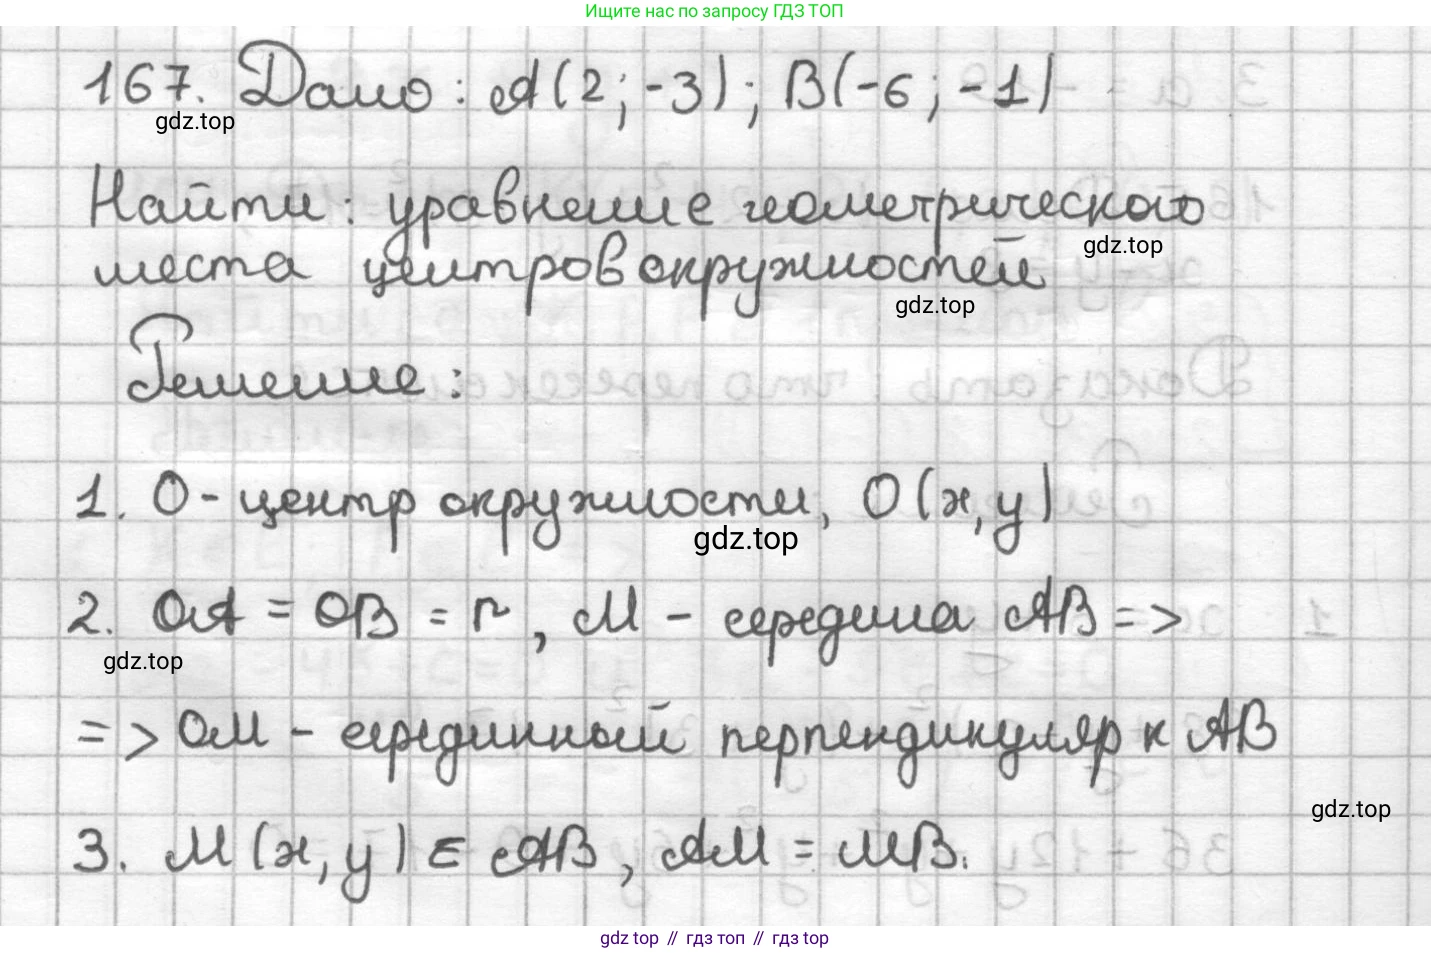 Ищите нас по запросу ГДЗ ТОП
167. Дано: A(2; -3); B(-6; -1)
gdz.top
Найти: уравнение геометрического
gdz.top
места центров окружностей
gdz.top
Решение:
1. O - центр окружности, O(x, y)
gdz.top
2. OA = OB = r, M - середина AB =>
gdz.top
=> OM - серединный перпендикуляр к AB
gdz.top
3. M(x, y) ∈ AB, AM = MB.
gdz top // гдз топ // гдз top